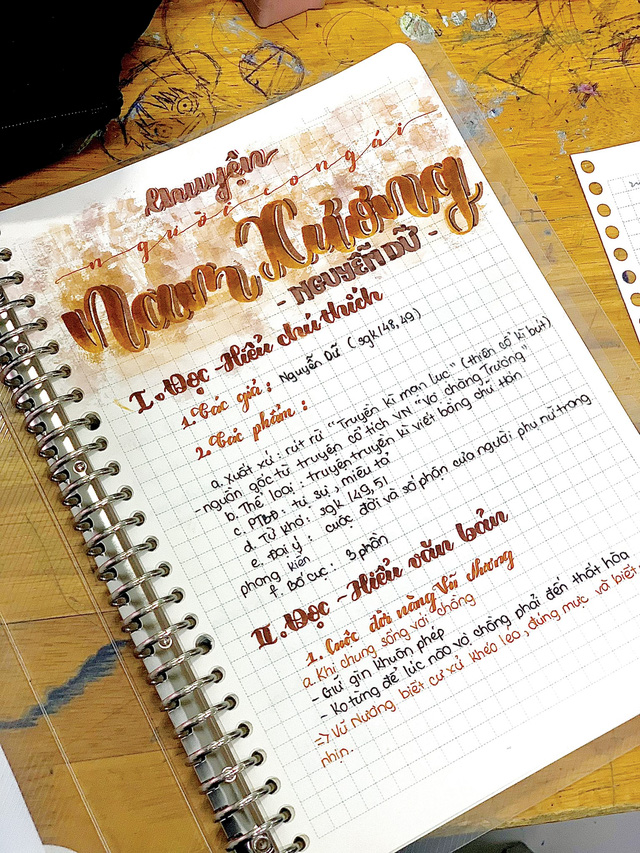 Chuyện
người con gái
Nam Xương
- NGUYỄN DỮ -
I. Đọc - Hiểu chú thích
1. Tác giả : Nguyễn Dữ ( sgk/48,49)
2. Tác phẩm :
a. Xuất xứ : rút từ "Truyền kì mạn lục" (thiên cổ kì bút)
- nguồn gốc từ truyện cổ tích VN "Vợ chàng Trương"
b. Thể loại : truyện truyền kì viết bằng chữ Hán
c. PTBĐ : tự sự, miêu tả
d. Từ khó : sgk /49, 51
e. Đại ý : cuộc đời và số phận của người phụ nữ trong
phong kiến
f. Bố cục : 3 phần
II. Đọc - Hiểu văn bản
1. Cuộc đời nàng Vũ Nương
a. Khi chung sống với chồng
- Giữ gìn khuôn phép
- Ko từng để lúc nào vợ chồng phải đến thất hòa
=> Vũ Nương biết cư xử khéo léo, đúng mực và biết
nhịn.